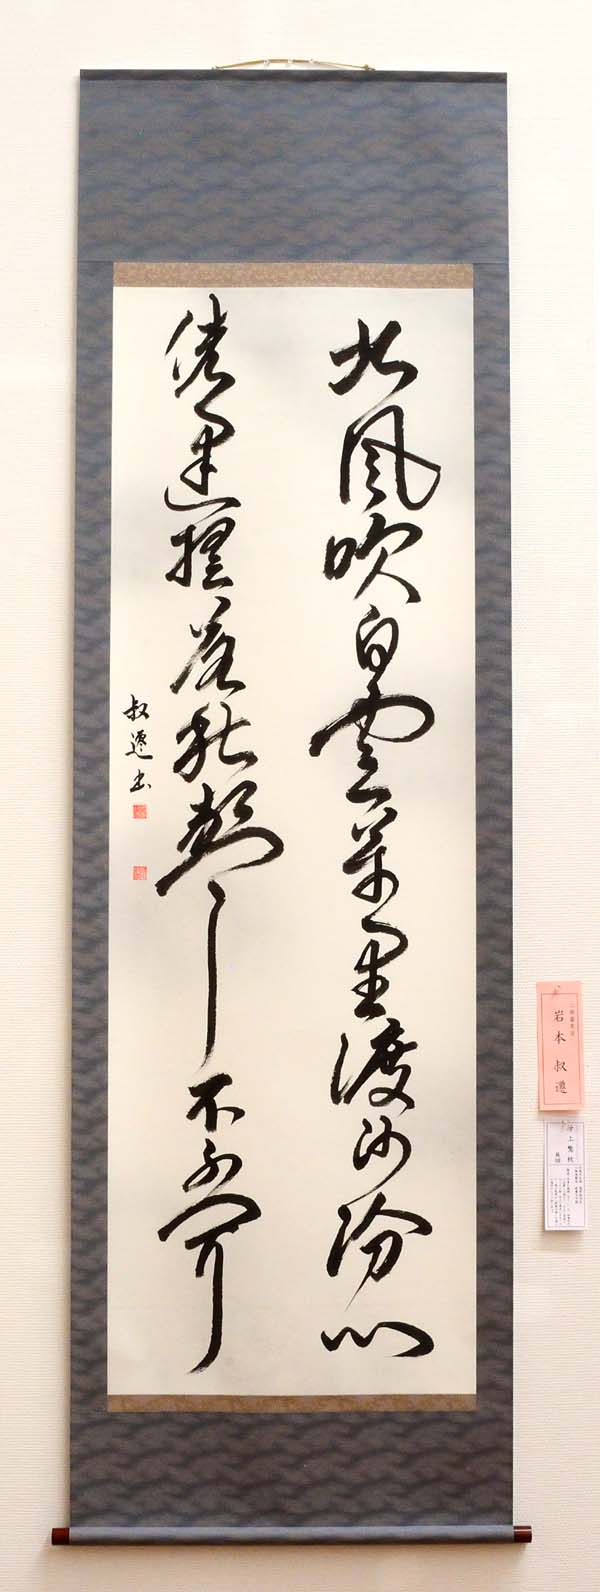 北風吹白雲萬里渡河汾心
緒逢揺落秋聲不可聞
叔遷書
岩本 叔遷
汾上驚秋